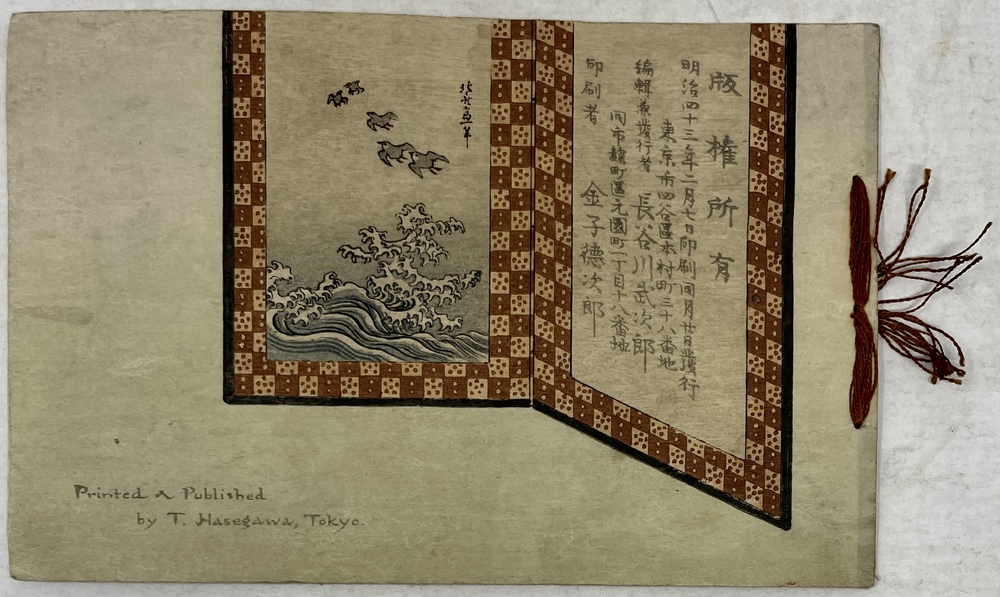 版権所有
明治四十三年二月七日印刷同月廿日發行
東京市四谷區本村町三十八番地
編輯兼發行者 長谷川武次郎
同市麹町區元園町二丁目十八番地
印刷者 金子德次郎
Printed & Published
by T. Hasegawa, Tokyo.